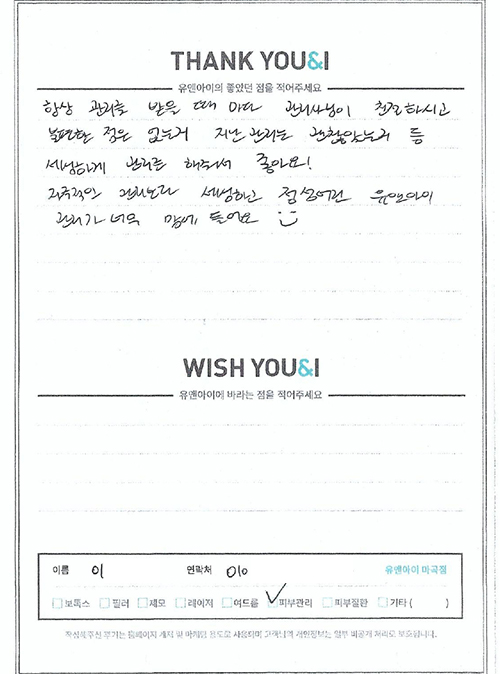 THANK YOU&I
유앤아이의 좋았던 점을 적어주세요
항상 관리를 받을 때 마다 관리사님이 친절하시고
불편한 점은 없는지 지난 관리는 괜찮았는지 등
세심하게 관리를 해주셔서 좋아요!
관리보다 세심하고 정성어린 유앤아이
관리가 너무 맘에 들어요 :)
WISH YOU&I
유앤아이에 바라는 점을 적어주세요
이름 이 연락처 010 유앤아이 마곡점
보톡스 필러 제모 레이저 여드름 ✓피부관리 피부질환 기타 ( )
작성해주신 후기는 홈페이지 게재 및 마케팅 용도로 사용되며 고객님의 개인정보는 일부 비공개 처리로 보호됩니다.